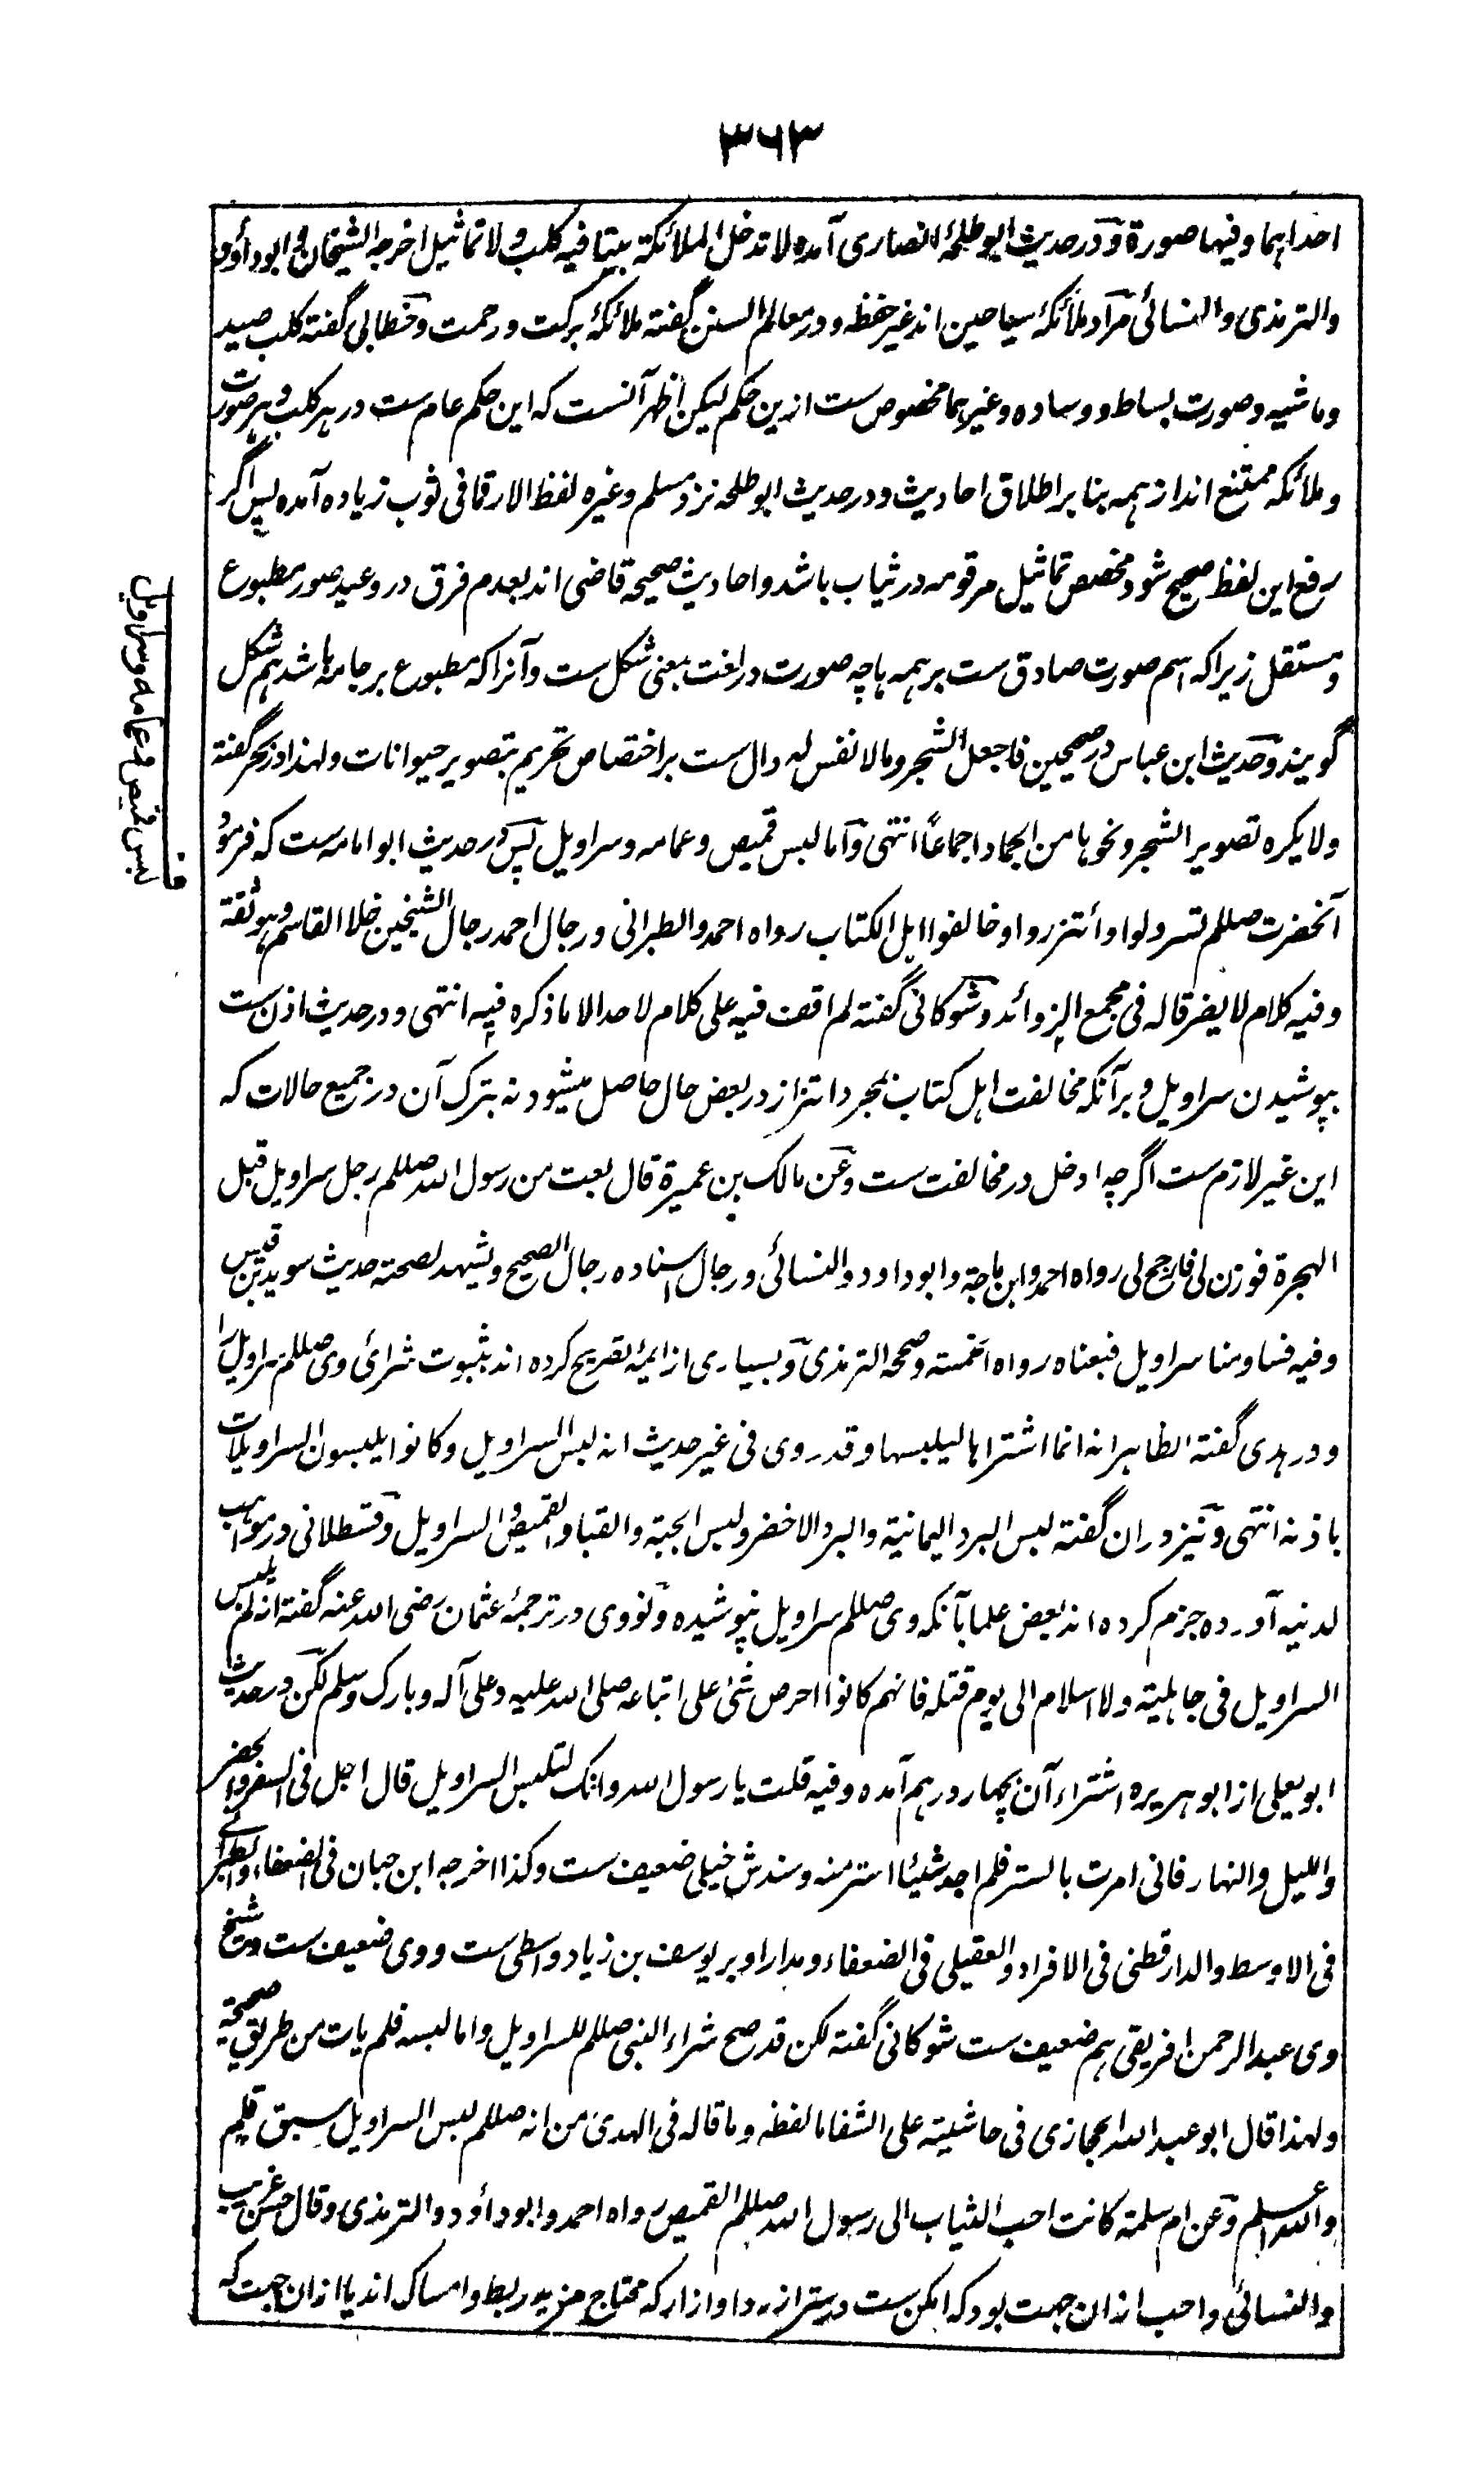 ۳۶۳
احداہما وفیہا صورة ودر حدیث ابو طلحہ انصاری آمدہ لا تدخل الملائکة بیتا فیہ کلب ولا تماثیل اخرجہ الشیخان وابو داؤد
والترمذی والنسائی مراد ملائکۂ سیاحین اند غیر حفظہ ودر معالم السنن گفتہ ملائکۂ برکت ورحمت وخطابی گفتہ کلب صید
وماشیہ وصورت بساط ووسادہ وغیرہما مخصوص ست ازین حکم لیکن اظہر آنست کہ این حکم عام ست در ہر کلب وہر صورت
وملائکہ ممتنع اند از ہمہ بنا بر اطلاق احادیث ودر حدیث ابو طلحہ نزد مسلم وغیرہ لفظ الا رقما فی ثوب زیادہ آمدہ پس اگر
رفع این لفظ صحیح شود مخصص تماثیل مرقومہ در ثیاب باشد واحادیث صحیحہ قاضی اند بعدم فرق در وعید صور مطبوع
ومستقل زیراکہ اسم صورت صادق ست بر ہمہ ہا چہ صورت در لغت بمعنی شکل ست وآنرا کہ مطبوع بر جامہ باشد ہم شکل
گویند وحدیث ابن عباس در صحیحین فاجعل الشجر وما لا نفس لہ دال ست بر اختصاص تحریم بتصویر حیوانات ولہذا در بحر گفتہ
ولا یکرہ تصویر الشجر ونحوہا من الجماد اجماعاً انتہی واما لبس قمیص وعمامہ وسراویل پس در حدیث ابو امامہ ست کہ فرمود
آنحضرت صللم تسرولوا وأتزروا وخالفوا اہل الکتاب رواہ احمد والطبرانی ورجال احمد رجال الشیخین خلا القاسم وہو ثقة
وفیہ کلام لا یضر قالہ فی مجمع الزوائد وشوکانی گفتہ لم اقف فیہ علی کلام لاحد الا ما ذکرہ فیہ انتہی ودر حدیث اذن ست
بپوشیدن سراویل وبرآنکہ مخالفت اہل کتاب بمجرد اتزار در بعض حال حاصل میشود نہ بترک آن در جمیع حالات کہ
این غیر لازم ست اگرچہ ادخل در مخالفت ست وعن مالک بن عمیرة قال بعت من رسول اللہ صللم رجل سراویل قبل
الہجرة فوزن لی فارجح لی رواہ احمد وابن ماجة وابو داود والنسائی ورجال اسنادہ رجال الصحیح ویشہد لصحتہ حدیث سوید بن قیس
وفیہ فساومنا سراویل فبعناہ رواہ الخمسة وصححہ الترمذی وبسیاری از ایمۂ تصریح کردہ اند بثبوت شرائ وی صللم سراویل را
ودر ہدی گفتہ الظاہر انہ انما اشتراہا لیلبسہا وقد روی فی غیر حدیث انہ لبس السراویل وکانوا یلبسون السراویلات
باذنہ انتہی ونیز دران گفتہ لبس البرد الیمانیة والبرد الاخضر ولبس الجبة والقبا والقمیص والسراویل وقسطلانی در مواہب
لدنیہ آوردہ جزم کردہ اند بعض علما بآنکہ وی صللم سراویل نپوشیدہ ونووی در ترجمۂ عثمان رضی اللہ عنہ گفتہ انہ لم یلبس
السراویل فی جاہلیة ولا اسلام الی یوم قتلہ فانہم کانوا احرص شئ علی اتباعہ صلی اللہ علیہ وعلی آلہ وبارک وسلم لکن در حدیث
ابو یعلی از ابو ہریرہ اشتراء آن بچہار درہم آمدہ وفیہ قلت یا رسول اللہ وانک لتلبس السراویل قال اجل فی السفر والحضر
واللیل والنہار فانی امرت بالستر فلم اجد شیئا استر منہ وسندش خیلی ضعیف ست وکذا اخرجہ ابن حبان فی الضعفاء والطبرانے
فی الاوسط والدارقطنی فی الافراد والعقیلی فی الضعفاء ومدار او بر یوسف بن زیاد واسطی ست ووی ضعیف ست وشیخ
وی عبد الرحمن افریقی ہم ضعیف ست شوکانی گفتہ لکن قد صح شراء النبی صللم للسراویل واما لبسہ فلم یات من طریق صحیحة
ولہذا قال ابو عبد اللہ الحجازی فی حاشیتہ علی الشفا ما لفظہ وما قالہ فی الہدی من انہ صللم لبس السراویل سبق قلم
واللہ اعلم وعن ام سلمة کانت احب الثیاب الی رسول اللہ صللم القمیص رواہ احمد وابو داؤد والترمذی وقال حسن غریب
والنسائی واحب ازان جہت بود کہ امکن ست در ستر از ردا وازار کہ محتاج مزید ربط وامساک اند یا ازان جہت کہ
ف لبس قمیص وعمامہ وسراویل